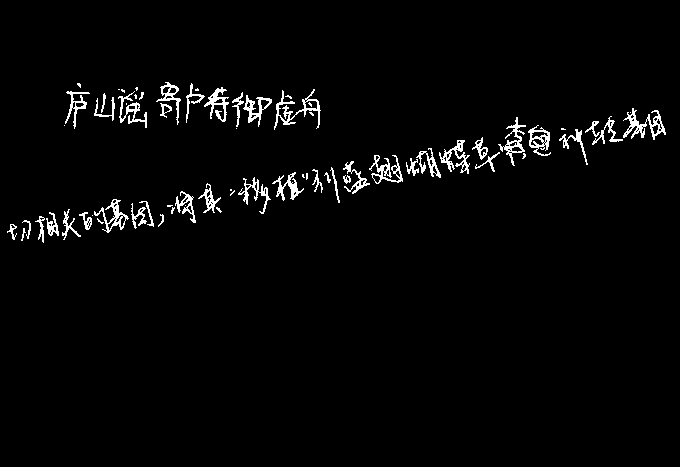 庐山谣寄卢侍御虚舟
切相关的基因,将其“移植”到蓝翅蝴蝶草 种转基因